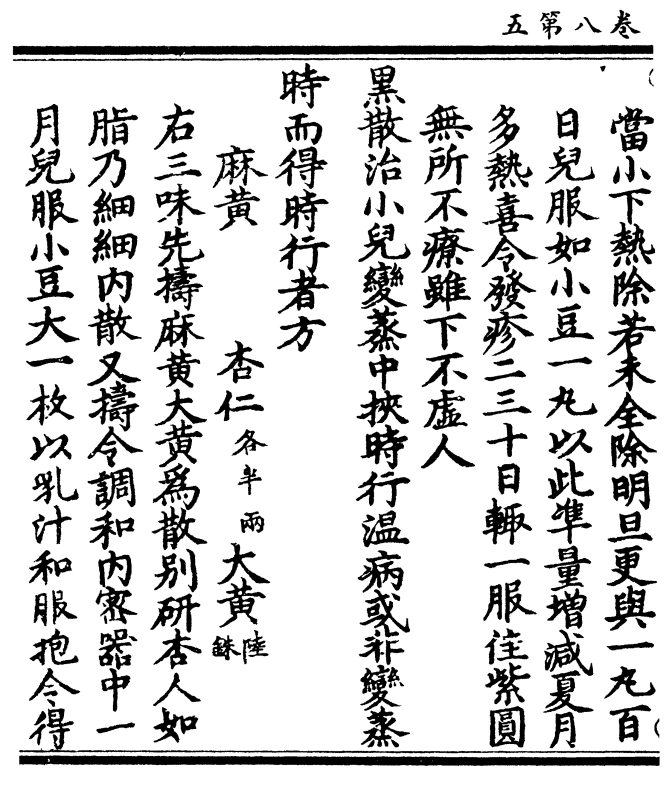 卷八第五
當小下熱除若未全除明旦更與一丸百
日兒服如小豆一丸以此準量增減夏月
多熱喜令發疹二三十日輒一服佳紫圓
無所不療雖下不虛人
黑散治小兒變蒸中挾時行温病或非變蒸
時而得時行者方
麻黄 杏仁各半兩 大黄陸銖
右三味先擣麻黄大黄爲散别研杏人如
脂乃細細内散又擣令調和内密器中一
月兒服小豆大一枚以乳汁和服抱令得